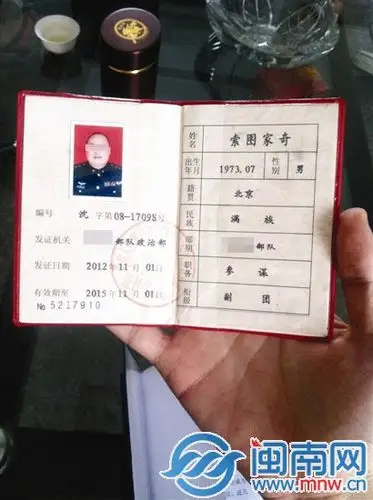 编号 沈 字第08-17098号
发证机关 部队政治部
发证日期 2012年11月01日
有效期至 2015年11月01日
No 5217910
姓名 索图家奇
出生年月 1973.07 性别 男
籍贯 北京
民族 满族
部别 部队
职务 参谋
衔级 副团
闽南网
www.mnw.cn